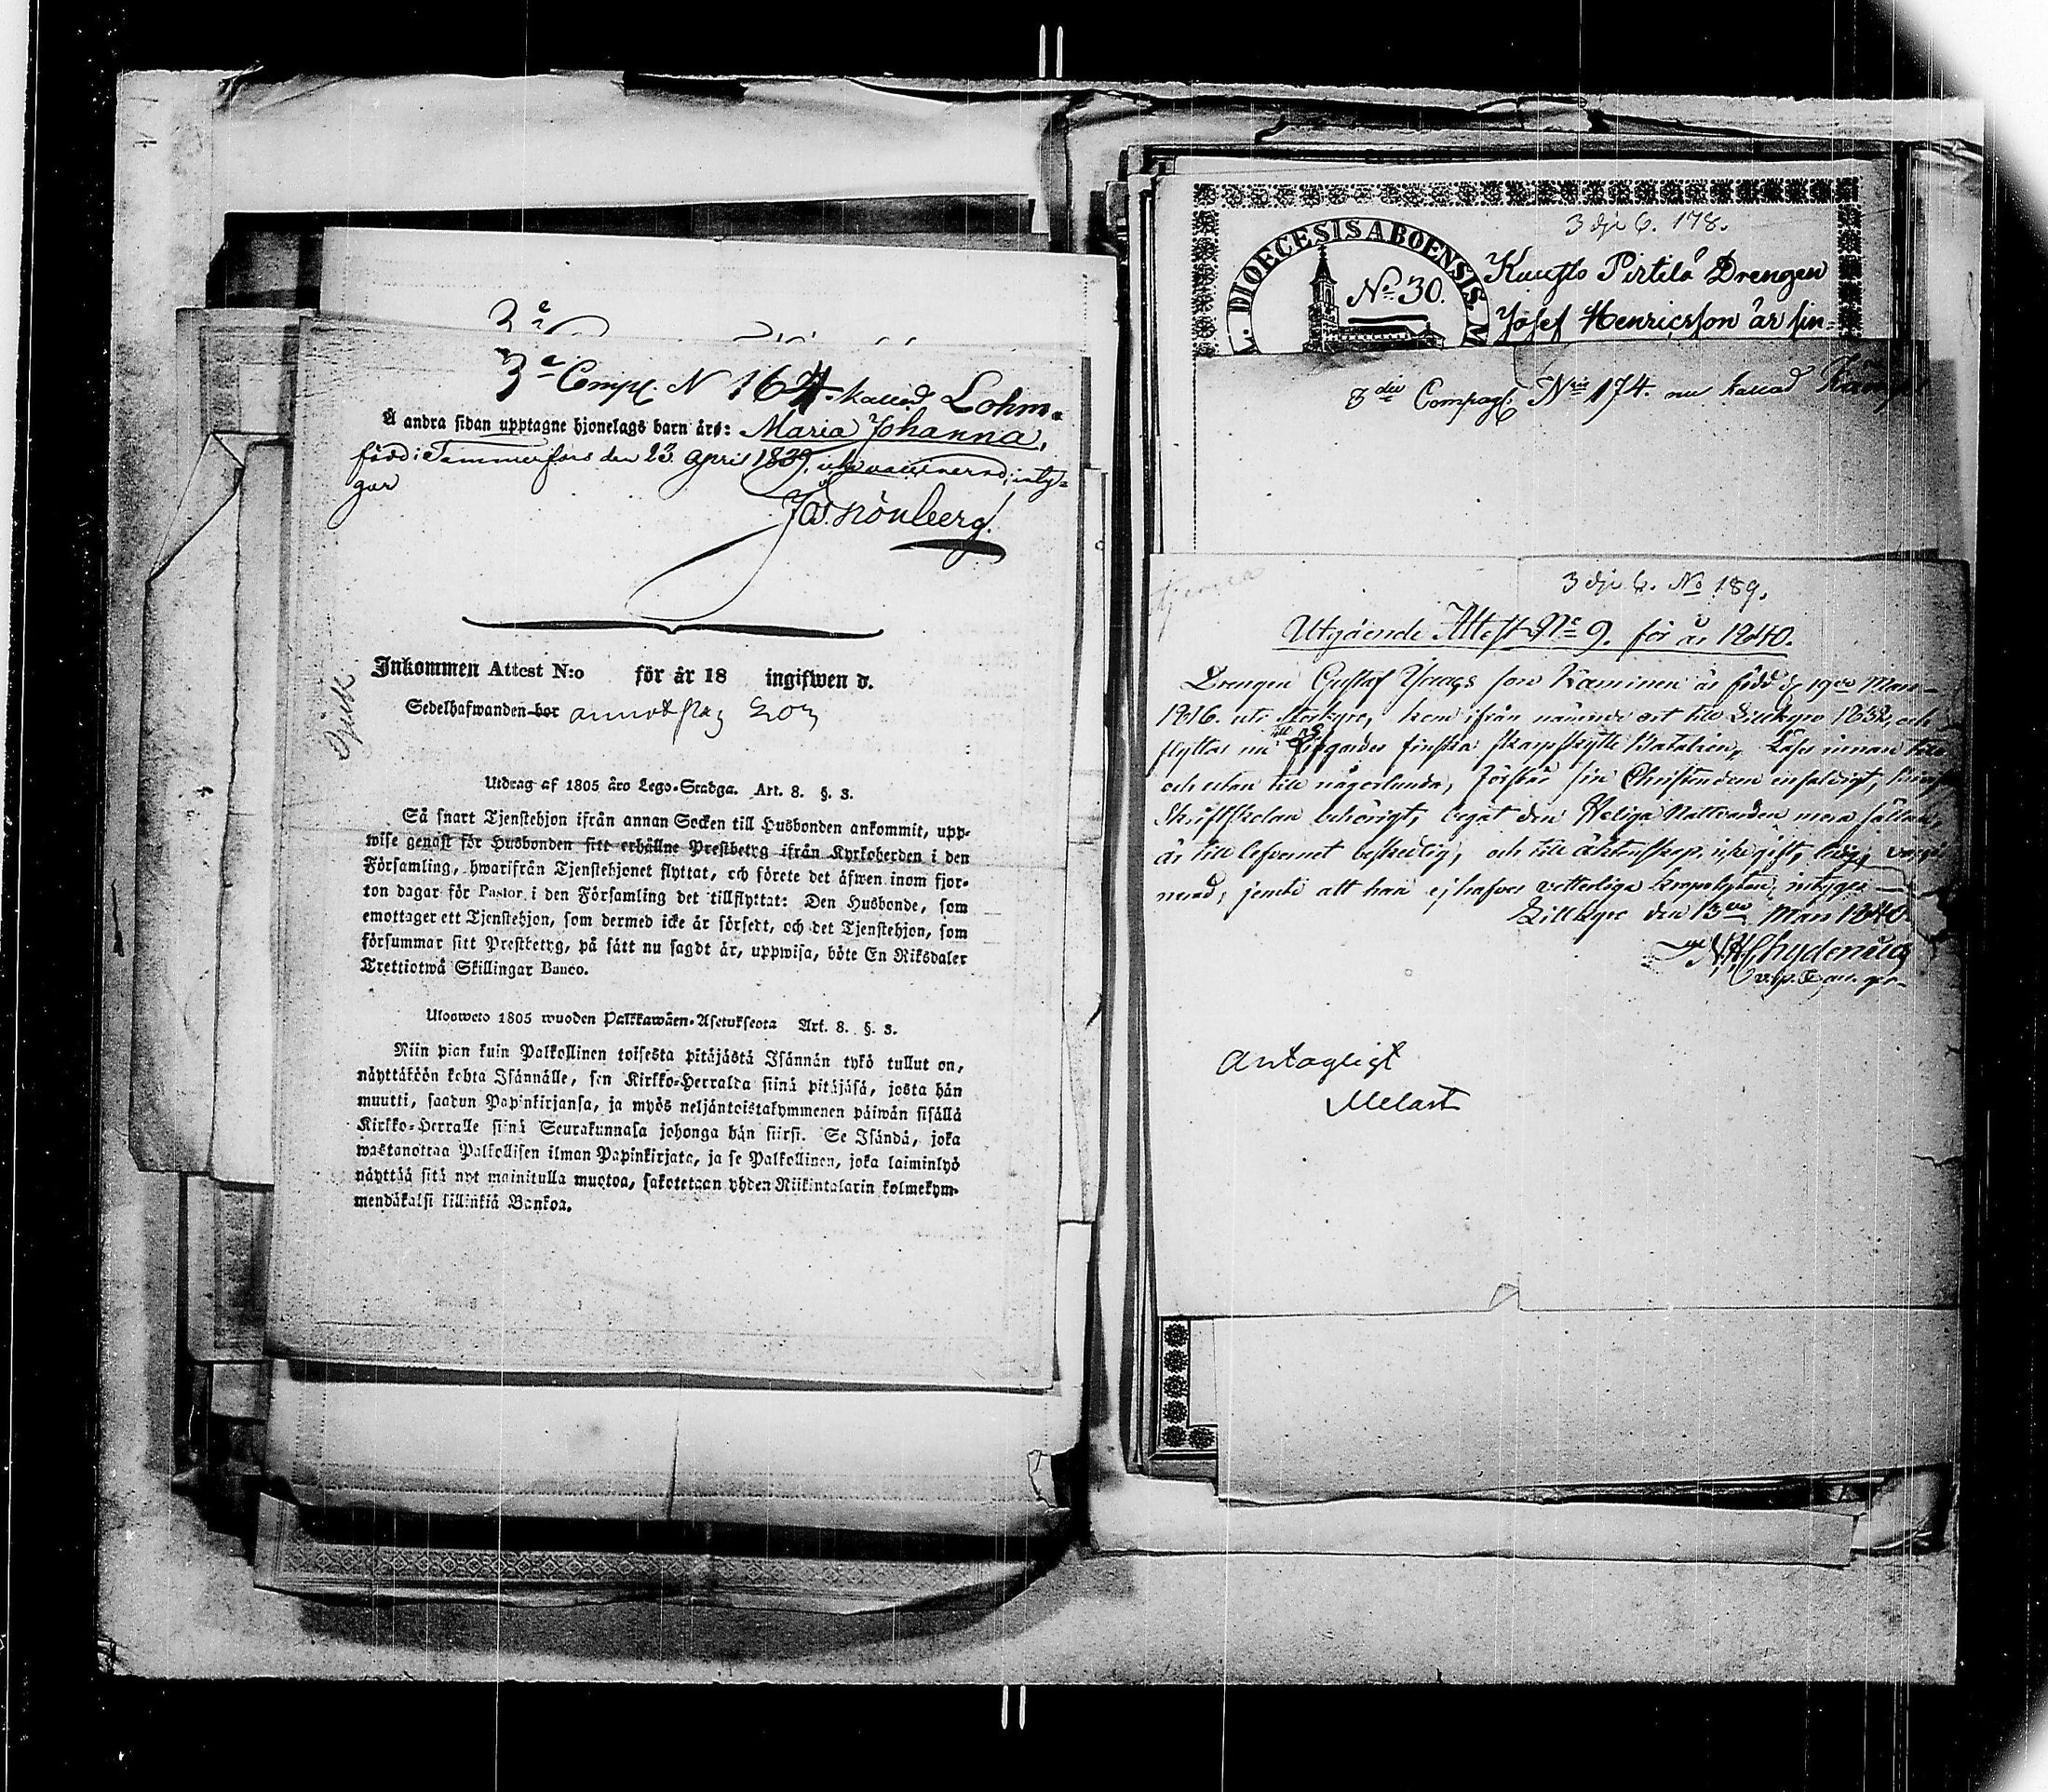 3e Comp. N 164. kallad Lohm.
Å andra sidan upptagne hjonelags barn äro: Maria Johanna,
född i Tammerfors den 23 April 1839, icke vaccinerad, inty-
gar
Inkommen Attest N:o för år 18 ingifwen d.
Sedelhafwanden bor
Utdrag af 1805 års Lego-Stadga. Art. 8. §. 3.
Så snart Tjenstehjon ifrån annan Socken till Husbonden ankommit, upp-
wise genast för Husbonden sitt erhållne Prestbetyg ifrån Kyrkoherden i den
Församling, hwarifrån Tjenstehjonet flyttat, och förete det äfwen inom fjor-
ton dagar för Pastor i den Församling det tillflyttat: Den Husbonde, som
emottager ett Tjenstehjon, som dermed icke är försedt, och det Tjenstehjon, som
försummar sitt Prestbetyg, på sätt nu sagdt är, uppwisa, böte En Riksdaler
Trettiotwå Skillingar Banco.
Ulosweto 1805 wuoden Palkkawäen-Asetuksesta Art. 8. §. 3.
Niin pian kuin Palkollinen toisesta pitäjästä Isännän tykö tullut on,
näyttäköön kohta Isännälle, sen Kirkko-Herralda siinä pitäjäsä, josta hän
muutti, saadun Papinkirjansa, ja myös neljäntoistakymmenen päiwän sisällä
Kirkko-Herralle siinä Seurakunnasa johonga hän siirsi. Se Isändä, joka
wastanottaa Palkollisen ilman Papinkirjata, ja se Palkollinen, joka laiminlyö
näyttää sitä nyt mainitulla muotoa, sakotetaan yhden Riikintalarin kolmekym-
mendäkaksi killinkiä Bankoa.
3dje C. 178.
DIOECESIS ABOENSIS
No 30.
Pirtilä Drengen
Josef Henricsson är fin-
3die Compag. Nris 174. nu kallad
3dje C. No 189.
Utgående Attest No 9. för år 1840.
Drengen Gustaf son Kaminen är född d. 19de Mars
1816. uti Storkyro, kom ifrån nämnde ort till Lillkyro 1832, och
flyttar nu till Finska Skarpskytte Bataljon, Läser innan till
och utan till någorlunda, förstår sin Christendom enfaldigt,
Skriftskolan behörigt, begåt den Heliga Nattvarden mera sällan,
är till lefvernet beskedlig, och till äktenskap icke gift, ledig,
nerad, jemte att han ej hafver vetterliga intygas
Lillkyro den 13de Mars 1840.
Chydenius
Antagligt
Melart